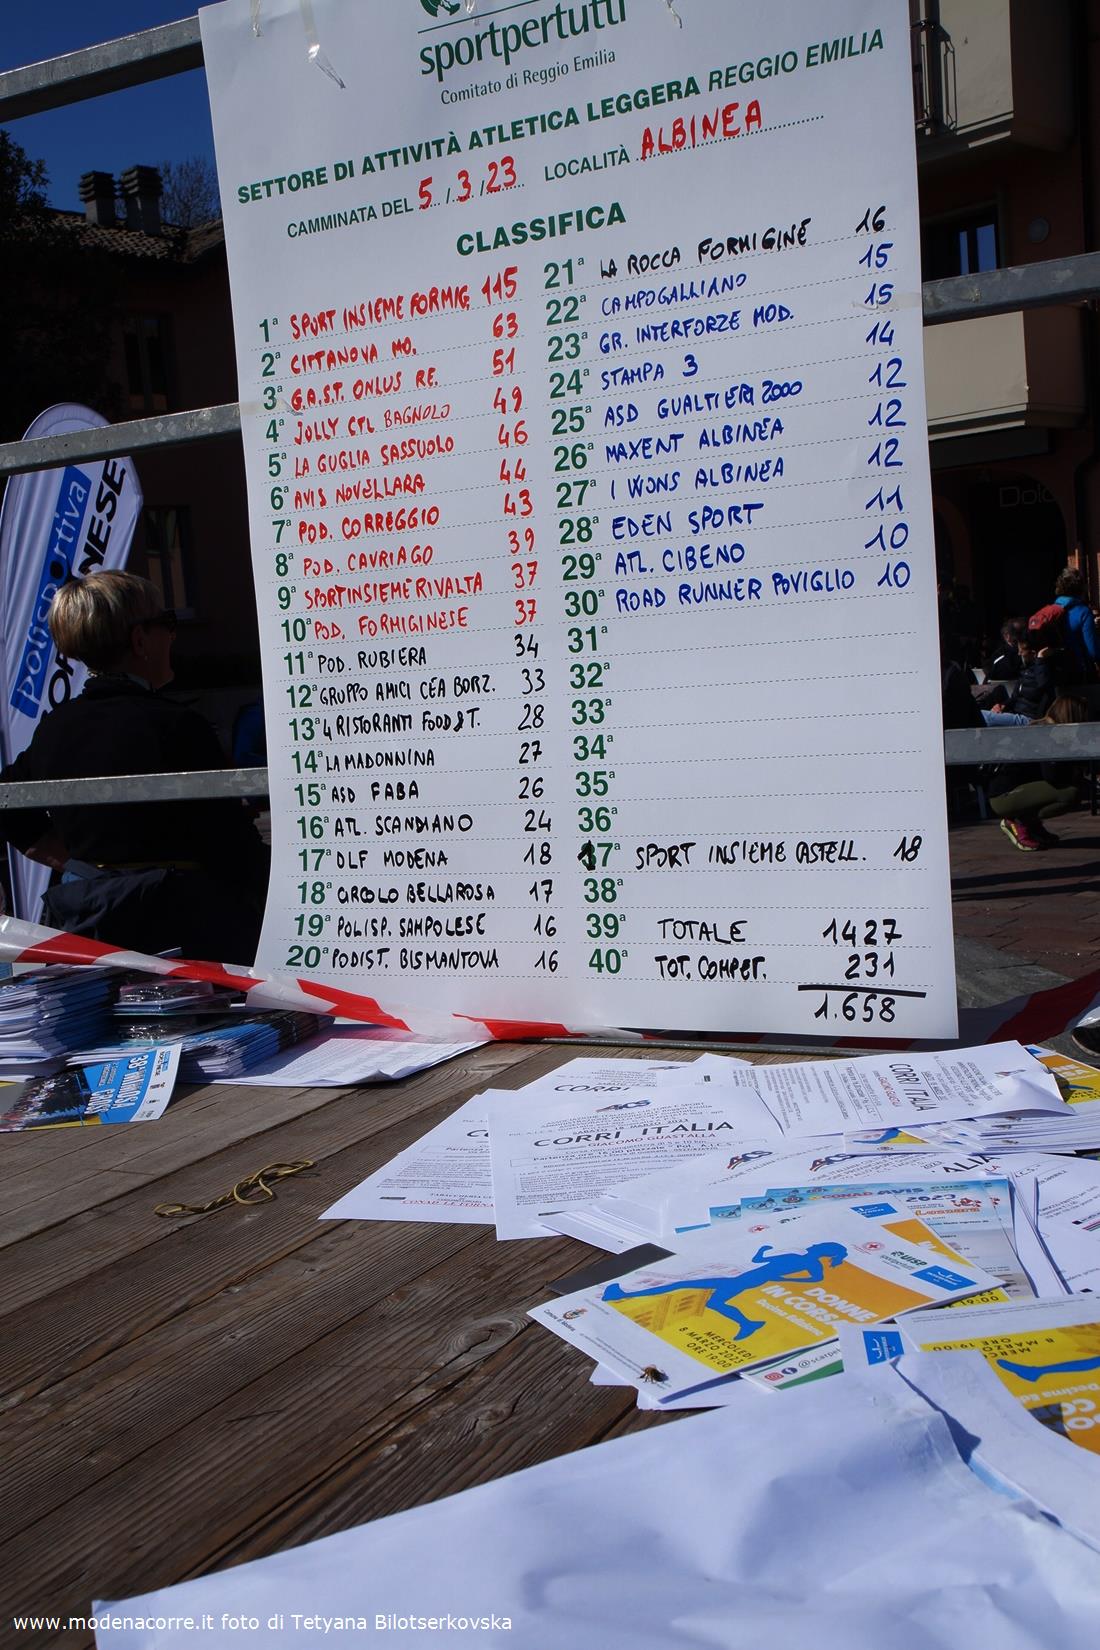 sportpertutti
Comitato di Reggio Emilia
SETTORE DI ATTIVITÀ ATLETICA LEGGERA REGGIO EMILIA
CAMMINATA DEL 5/3/23 LOCALITÀ ALBINEA
CLASSIFICA
1ª SPORT INSIEME FORMIG. 115
2ª CITTANOVA MO. 63
3ª G.A.S.T. ONLUS RE. 51
4ª JOLLY CTL BAGNOLO 49
5ª LA GUGLIA SASSUOLO 46
6ª AVIS NOVELLARA 44
7ª POD. CORREGGIO 43
8ª POD. CAVRIAGO 39
9ª SPORTINSIEME RIVALTA 37
10ª POD. FORMIGINESE 37
11ª POD. RUBIERA 34
12ª GRUPPO AMICI CEA BORZ. 33
13ª 4 RISTORANTI FOOD & T. 28
14ª LA MADONNINA 27
15ª ASD FABA 26
16ª ATL. SCANDIANO 24
17ª DLF MODENA 18
18ª CIRCOLO BELLAROSA 17
19ª POLISP. SAMPOLESE 16
20ª PODIST. BISMANTOVA 16
21ª LA ROCCA FORMIGINE 16
22ª CAMPOGALLIANO 15
23ª GR. INTERFORZE MOD. 15
24ª STAMPA 3 14
25ª ASD GUALTIERI 2000 12
26ª MAXENT ALBINEA 12
27ª I WONS ALBINEA 12
28ª EDEN SPORT 11
29ª ATL. CIBENO 10
30ª ROAD RUNNER POVIGLIO 10
31ª
32ª
33ª
34ª
35ª
36ª
17ª SPORT INSIEME CASTELL. 18
38ª
39ª TOTALE 1427
40ª TOT. COMPET. 231
1.658
polisportiva
CORRI ITALIA
CORRI ITALIA
GIACOMO GUASTALLA
UISP
sportpertutti
DONNE
IN CORSA
Decima Edizione
MERCOLEDÌ
8 MARZO 2023
ORE 19:00
8 MARZO
ORE 19:00
Decima
www.modenacorre.it foto di Tetyana Bilotserkovska